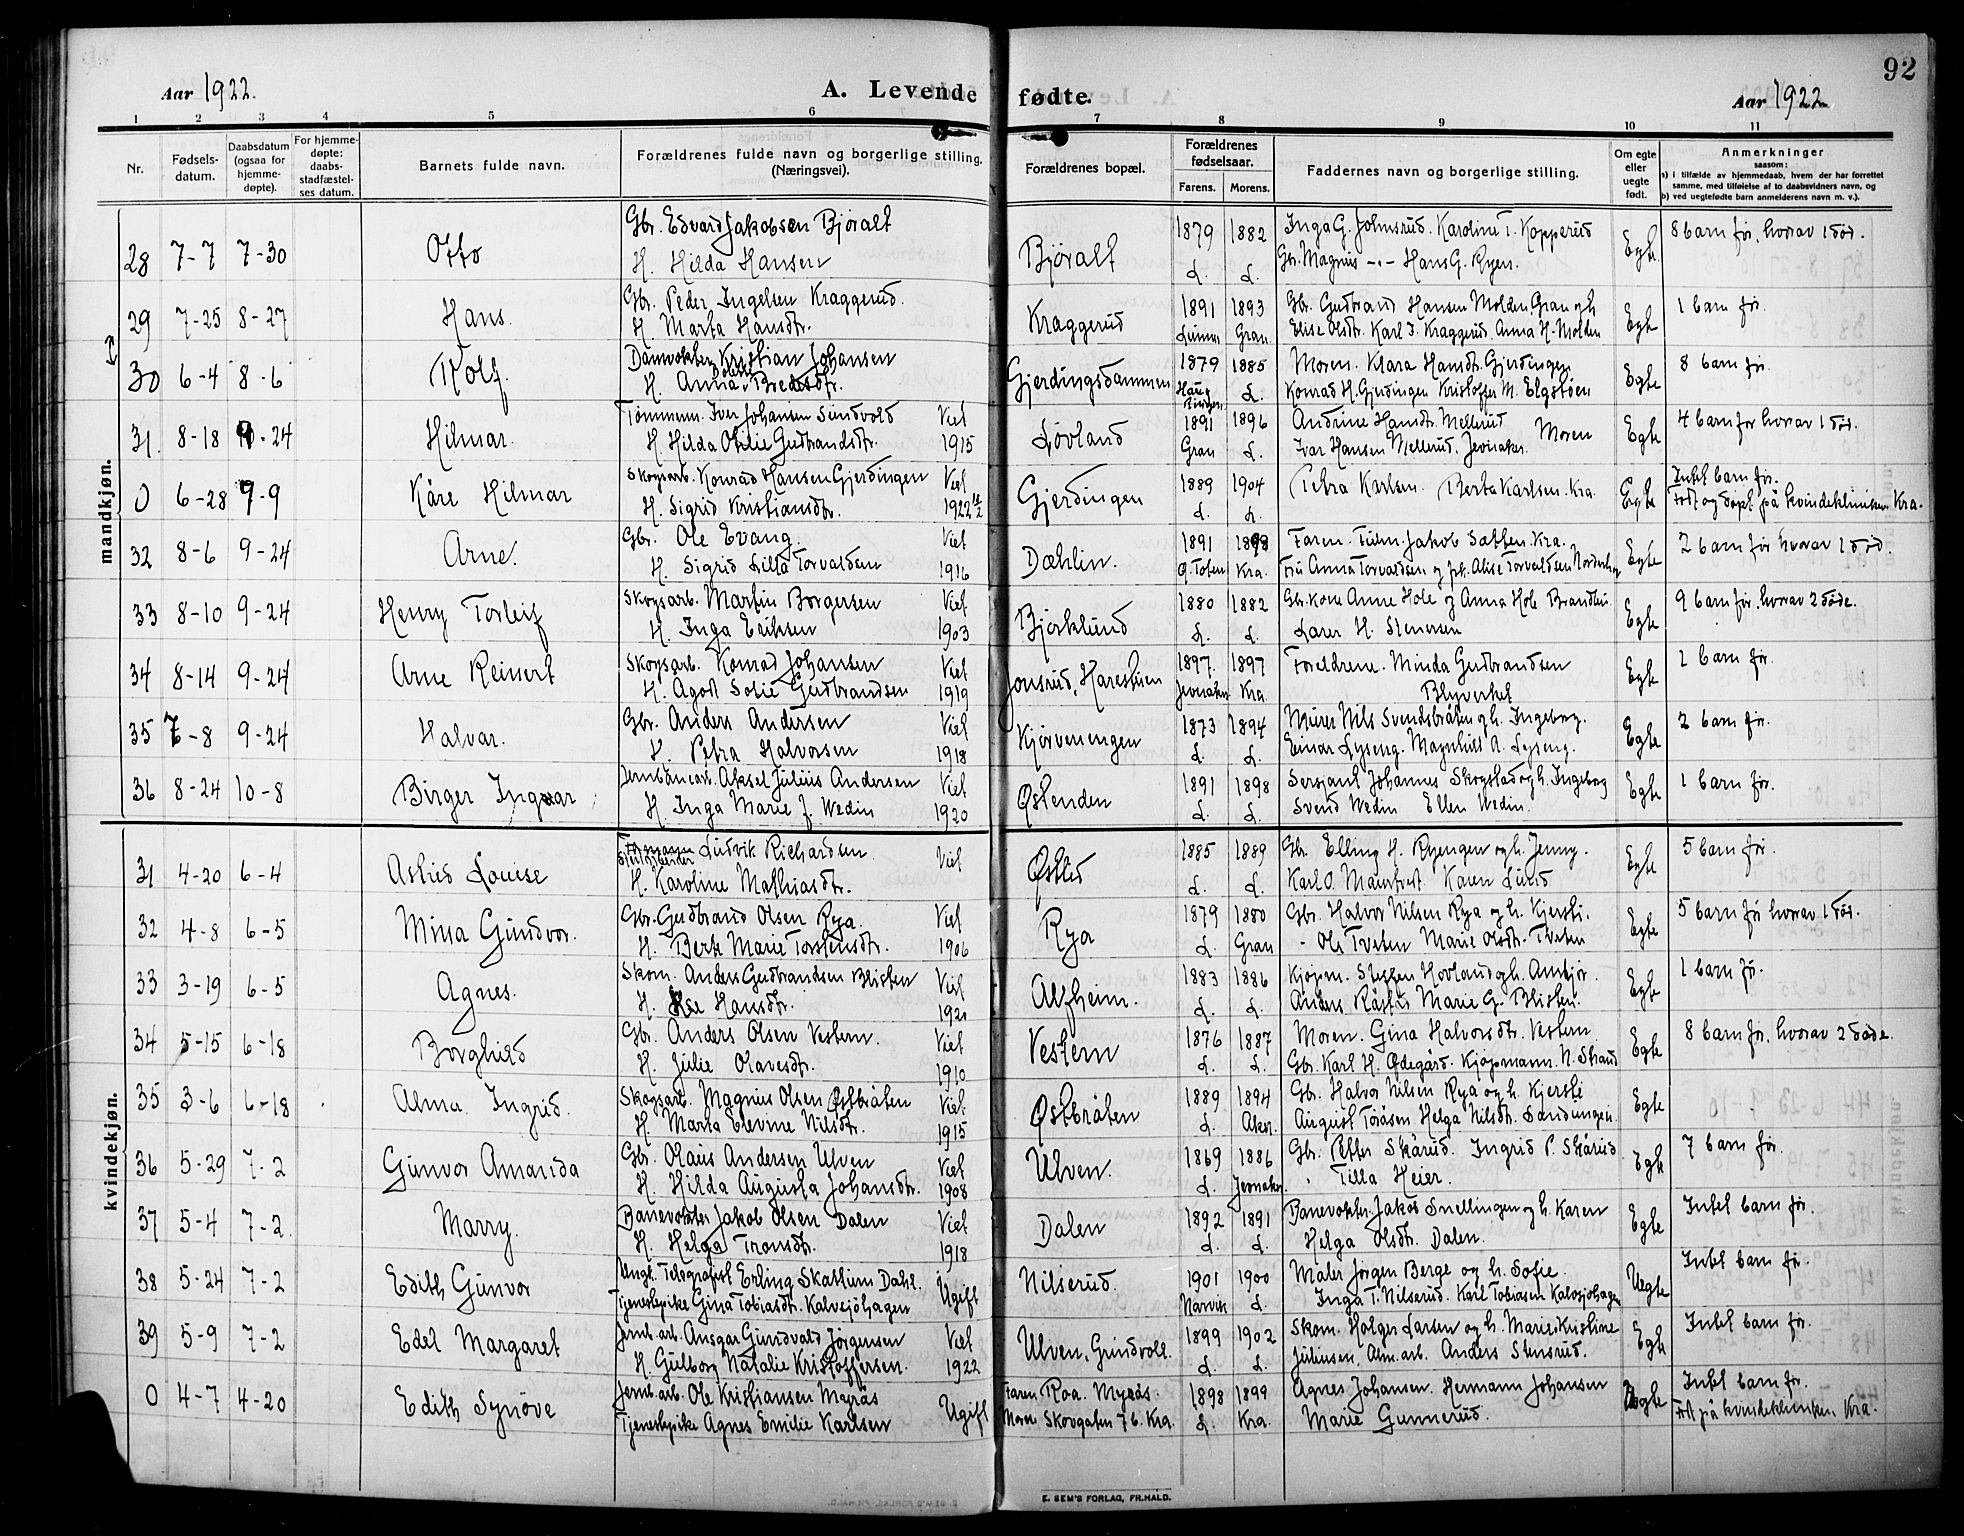 92
Aar 1922.
A. Levende fødte.
Aar 1922
1 2 3 4 5 6 7 8 9 10 11
Nr.
Fødsels-
datum.
Daabsdatum
(ogsaa for
hjemme-
døpte).
For hjemme-
døpte:
daabs-
stadfæstel-
ses datum.
Barnets fulde navn.
Forældrenes fulde navn og borgerlige stilling.
(Næringsvei).
Forældrenes bopæl.
Forældrenes
fødselsaar.
Farens. Morens.
Faddernes navn og borgerlige stilling.
Om egte
eller
uegte
født.
Anmerkninger
saasom:
a) i tilfælde av hjemmedaab, hvem der har forrettet
samme, med tilføielse af to daabsvidners navn, og
b) ved uegtefødte barn anmelderens navn m. v.).
mandkjøn.
Gbr. Edvard Jakobsen Bjøralt 1879 1882 Inga G. Johnsrud. Karoline T. Kopperud 8 barn før, hvorav 1 død.
28 7-7 7-30 Otto H. Hilda Hansen Bjøralt L. L. Gbr. Magnus -"- Hans G. Ryen. Egte
Gbr. Peder Ingelsen Kraggerud. 1891 1893 Gbr. Gudbrand Hansen Molden Gran og h. 1 barn før.
29 7-25 8-27 Hans. H. Marta Hansdtr. Kraggerud Lunner Gran Elise Olsdtr. Karl I. Kraggerud. Anna H. Molden Egte
Damvokter Kristian Johansen 1879 1885 Moren. Klara Hansdtr. Gjerdingen 8 barn før.
30 6-4 8-6 Rolf. H. Anna Gjerdingsdammen L. Konrad H. Gjerdingen Kristoffer M. Elgstøen Egte
Tømmerm. Iver Johansen Sundvold Viet 1891 1896 Andrine Hansdtr. Mellerud 4 barn før hvorav 1 død.
31. 8-18 -24 Hilmar. H. Hilda Otilie Gudbrandsdtr. 1915 Løvland Gran L. Ivar Hansen Mellerud, Jevnaker. Moren Egte
Skogsarb. Konrad Hansen Gjerdingen Viet 1889 1904 Petra Karlsen. Berta Karlsen. Kra. Intet barn før.
0 6-28 9-9 Kåre Hilmar H. Sigrid Kristiansdtr. 1922 Gjerdingen L. L. Egte Født og døpt på kvindeklinikken Kra.
Gbr. Ole Evang. Viet 1891 1898 Faren. Fullm. Jakob Sathen. Kra. 2 barn før hvorav 1 død.
32 8-6 9-24 Arne. H. Sigrid Lilla Torvaldsen 1916 Dæhlin. Ø. Toten Kra. Fru Anna Torvaldsen og frk. Alise Torvaldsen Egte
Skogsarb. Martin Borgersen Viet 1880 1882 Gbr. kone Anne Hole og Anna Hole Brandbu 9 barn før, hvorav 2 døde.
33 8-10 9-24 Henry Torleif H. Inga Eriksen 1903 Bjørklund L. L. Lars H. Stenersen Egte
Skogsarb. Konrad Johansen Viet 1897. 1897 Foreldrene. Minda Gudbrandsen 1 barn før.
34 8-14 9-24 Arne Reinert H. Agot Sofie Gudbrandsen 1919 Jonsrud, Harestuen Jevnaker Kra Blyverket Egte
Gbr. Anders Andersen Viet 1873 1894 Murer Nils Svendsbråten og h. Ingeborg. 2 barn før.
35 7-8 9-24 Halvar. H. Petra Halvorsen 1918 Kjørvenengen L. L. Einar Lyseng. Magnhild A. Lyseng. Egte
Jernbanearb. Aksel Julius Andersen Viet 1891 1898 Sersjant Johannes Skogstad og h. Ingeborg 1 barn før.
36 8-24 10-8 Birger Ingvar H. Inga Marie f. Wedin 1920 Østenden L. L. Svend Wedin Ellen Wedin. Egte
kvindekjøn.
Ludvik Richardsen. Viet 1885 1889 Gbr. Elling H. Ryengen og h. Jenny. 5 barn før.
31 4-20 6-4 Astrid Louise H. Karoline Mathiasdtr. Østlid L. L. Karl O. Karen Lund Egte
Gbr. Gudbrand Olsen Rya. Viet 1879 1880 Gbr. Halvor Nilsen Rya og h. Kjersti. 5 barn før hvorav 1 død.
32 4-8 6-5 Mina Gundvor. H. Berte Marie Torstensdtr. 1906 Rya L. Gran - Ole Tveten Marie Olsdtr. Tveten Egte
Skom. Anders Gudbrandsen Blisten Viet 1883 1886 Kjøpm. Steffen Hovland og h. Ambjør. 1 barn før.
33 3-19 6-5 Agnes. H. Hansdtr. 1921 Alfheim. L. L. Anders Råstus Marie G. Blisten. Egte
Gbr. Anders Olsen Vestern. Viet 1876 1887 Moren. Gina Halvorsdtr. Vestern 8 barn før, hvorav 2 døde.
34 5-15 6-18 Borghild H. Julie Olavesdtr. 1910 Vestern L. L. Gbr. Karl H. Ødegård. Kjøpmann. N. Strand Egte
Skogsarb. Magnus Olsen Østbråten Viet 1889 1894 Gbr. Halvor Nilsen Rya og h. Kjersti
35 3-6 6-18 Alma Ingrid. H. Marta Elevine Nilsdtr. 1915 Østbråten L. Aker. August Toråsen Helga Nilsdtr. Sandungen. Egte
Gbr. Olaus Andersen Ulven Viet 1869 1886 Gbr. Petter Skårud. Ingrid P. Skårud. 7 barn før.
36 5-29 7-2 Gunvor Amanda H. Hilda Augusta Johansdtr. 1908 Ulven. L. Jevnaker. Tilla Heier. Egte
Banevokter Jakob Olsen Dalen Viet 1892 1891 Banevokter Jakob Snellingen og h. Karen Intet barn før.
37 5-4 7-2 Marry. H. Helga Tronsdtr. 1918 Dalen L. L. Helga Olsdtr. Dalen. Egte
Ungk. Telegrafist Erling Skathum Dahl. 1901 1900 Maler Jørgen Berge og h. Sofie. Intet barn før.
38 5-24 7-2 Edith Gunvor Tjenestepike Gina Tobiasdtr. Kalvsjøhagen Ugift Nilserud. Narvik L. Inga T. Nilserud. Karl Tobiasen Kalvsjøhagen Uegte
Jernb. arb. Ansgar Gundvald Jørgensen Viet 1899 1902 Skom. Holger Larsen og h. Marie. Kristine Intet barn før.
39 5-9 7-2 Edel Margaret H. Gulborg Natalie Kristoffersen. 1922 Ulven, Grindvoll. L. L. Juliussen. Alm. arb. Anders Stensrud. Egte
Jernb. arb. Ole Kristiansen Myrås Faren Roa. Myrås. 1898 1899 Agnes Johansen. Hermann Johansen Intet barn før.
0 4-7 4-20 Edith Synøve Tjenestepike Agnes Emilie Karlsen Ugift Moren Skovgaten 7 b. Kra. L. Kra. Marie Gunnerud. Uegte Født på kvindeklinikken Kra.
E. SEM'S FORLAG, FR.HALD.